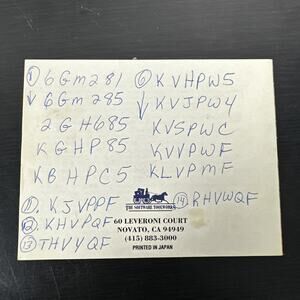 ① 6Gm281
↓ 6Gm285
2GH685
KGHP85
KBHPC5
⑥ KVHPW5
↓ KVJPW4
KVSPWC
KVVPWF
KLVPMF
⑪ KJVPPF
⑫ KHVPQF
⑬ THVYQF
⑭ RHVWQF
THE SOFTWARE TOOLWORKS
60 LEVERONI COURT
NOVATO, CA 94949
(415) 883-3000
PRINTED IN JAPAN